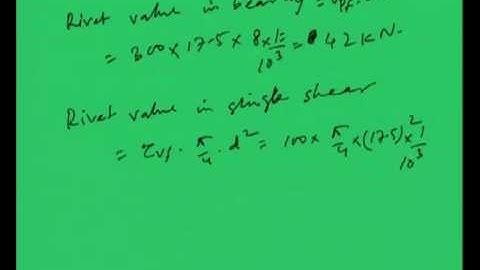 Rivet value in bearing = σpf.
= 300 × 17.5 × 8 × 1/10³ = 42 kN.
Rivet value in single shear
= τvf · π/4 · d² = 100 × π/4 × (17.5)² × 1/10³